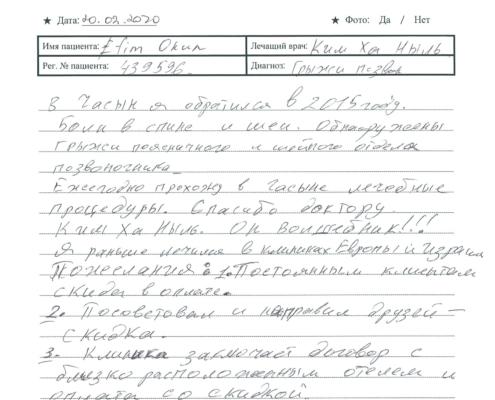 ★ Дата: 20.02.2020 ★ Фото: Да / Нет
Имя пациента: Efim Окип Лечащий врач: Ким Ха Ныль
Рег. № пациента: 439596. Диагноз: Грыжи позвон
В Часын я обратился в 2015 году.
Боли в спине и шеи. Обнаружены
грыжи поясничного и шейного отдела
позвоночника.
Ежегодно прохожу в Часыне лечебные
процедуры. Спасибо доктору
Ким Ха Ныль. Он волшебник!!!
Я раньше лечился в клиниках Европы и Израиля
Пожелания: 1. Постоянным клиентам
скидка в оплате.
2. Посоветовал и направил друзей —
скидка.
3. Клиника заключает договор с
близко расположенным отелем и
оплата со скидкой.